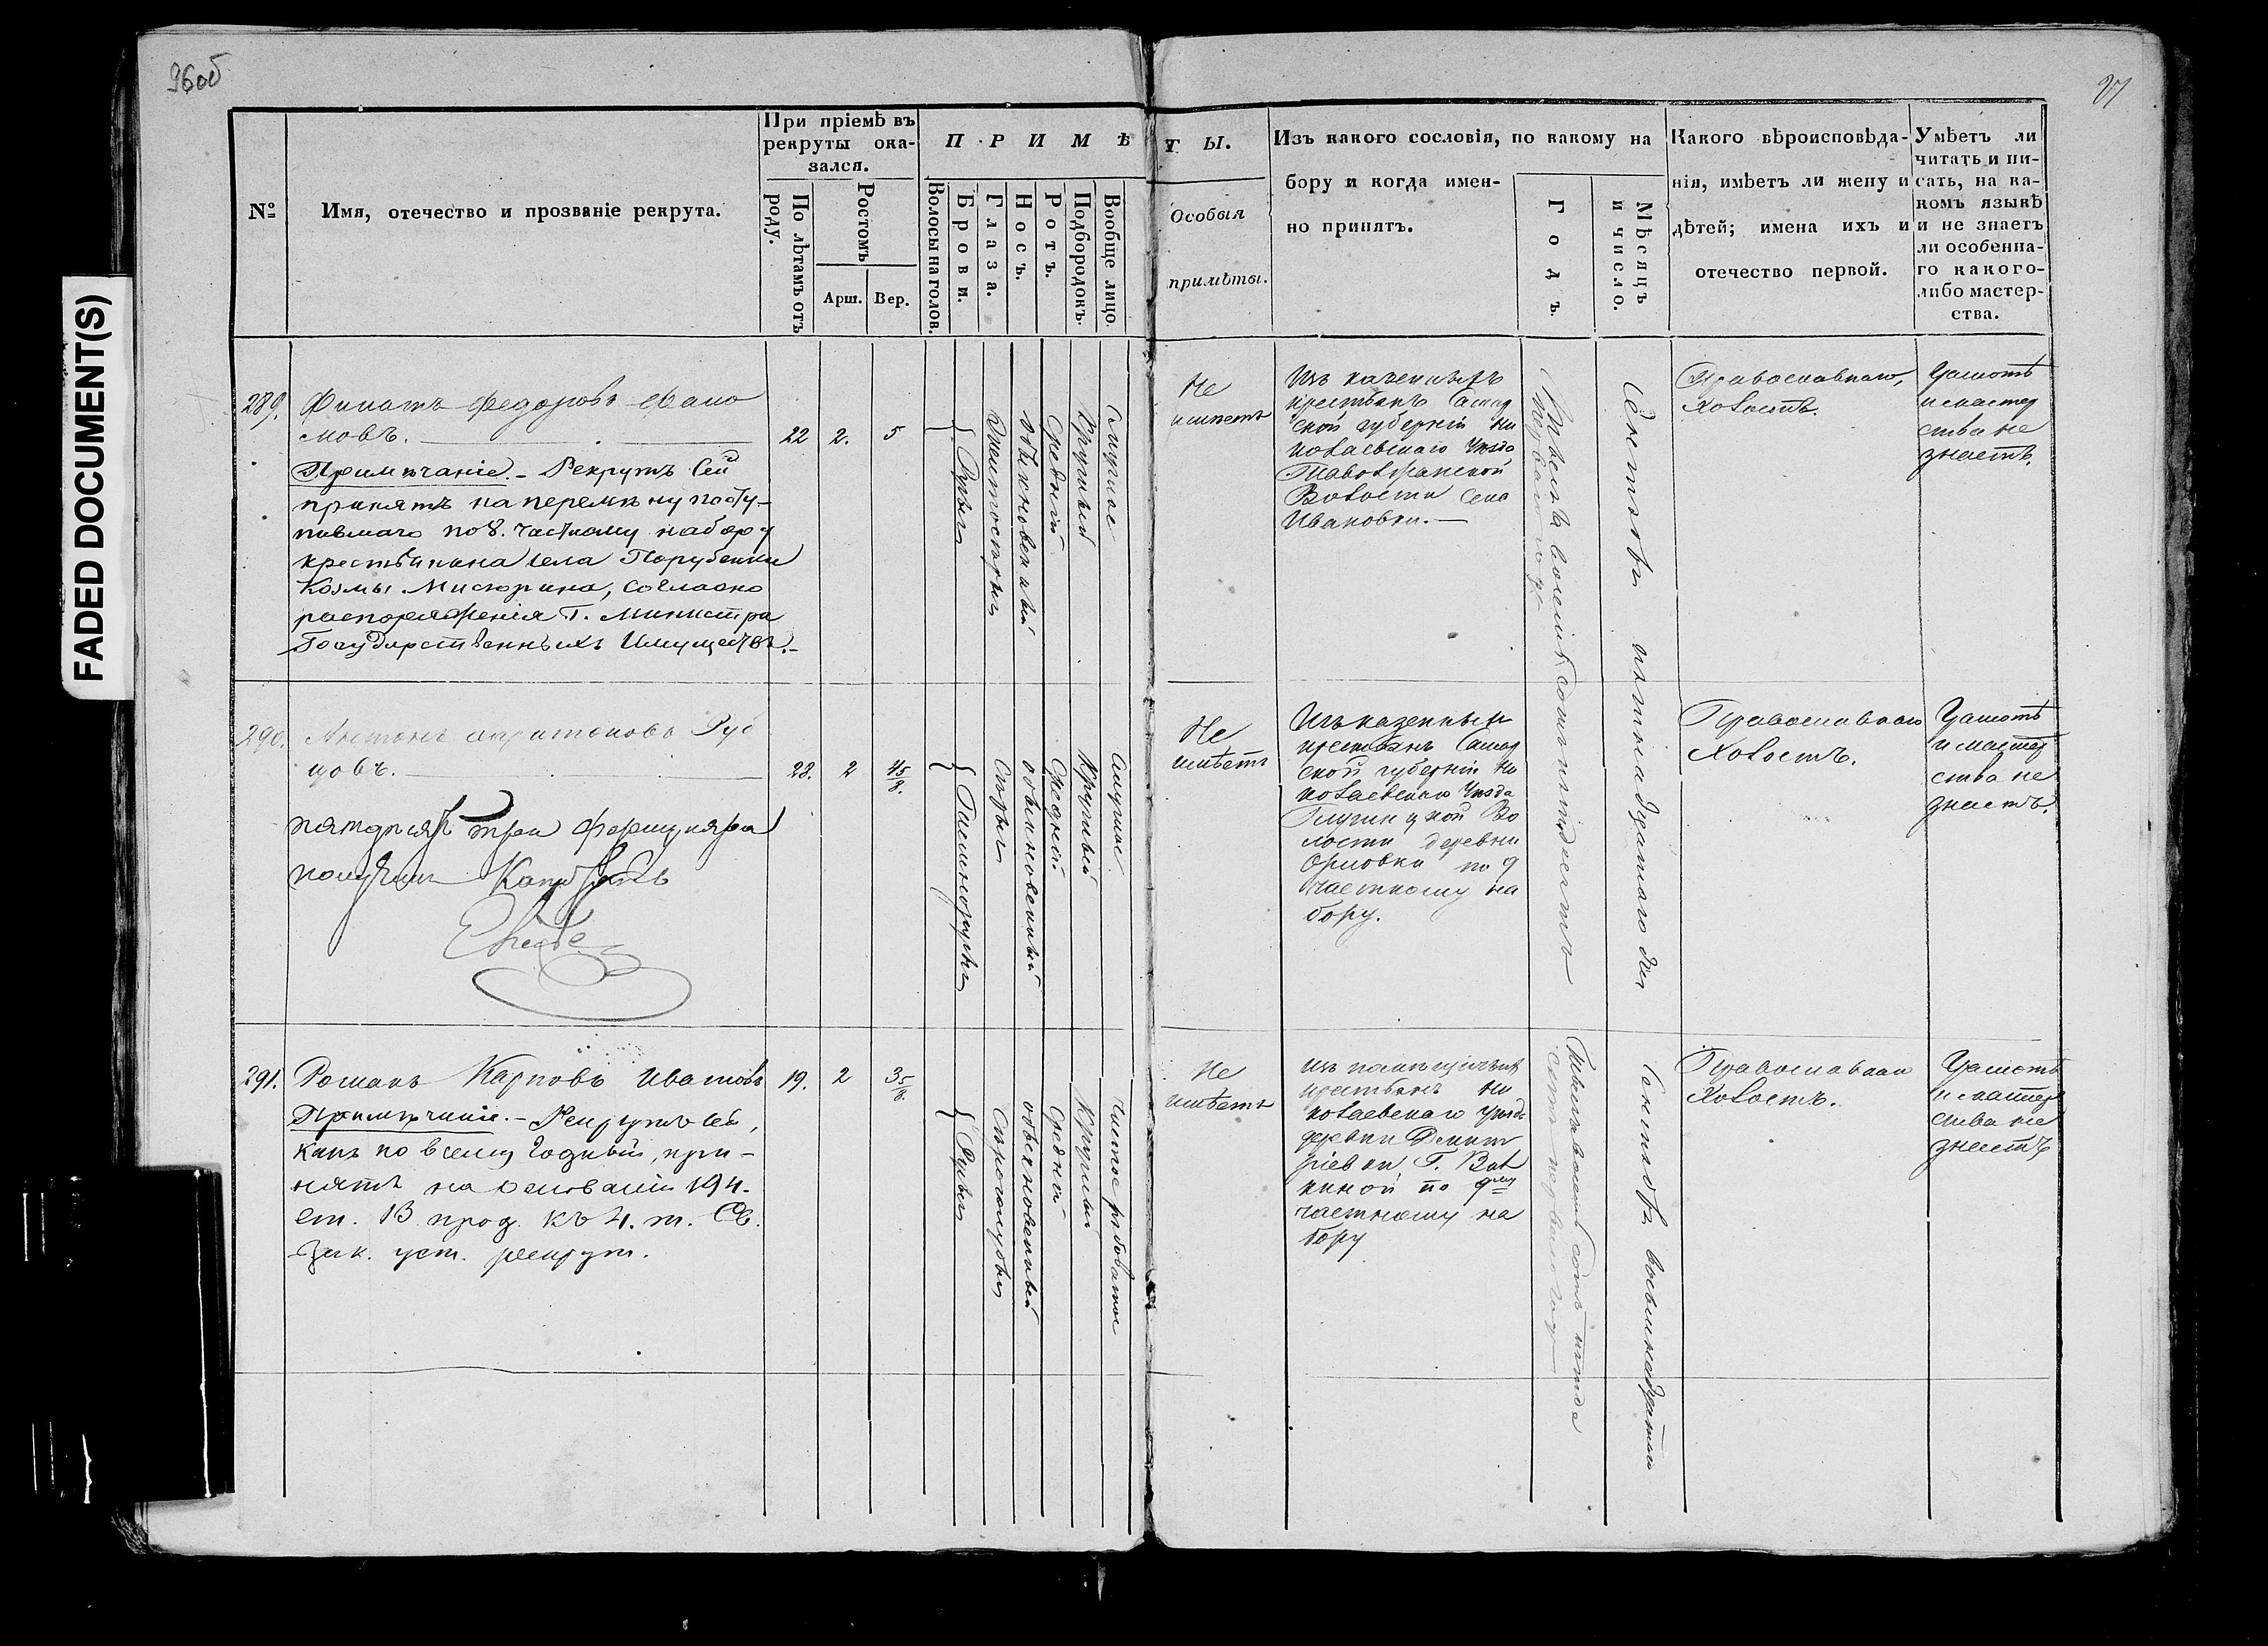 FADED DOCUMENT(S)
96об
97
№
Имя, отечество и прозваніе рекрута.
При пріемѣ въ
рекруты ока-
зался.
По лѣтамъ отъ
роду.
Ростомъ
Арш.
Вер.
ПРИМѢ
Волосы на голов.
Брови.
Глаза.
Носъ.
Ротъ.
Подбородокъ.
Вообще лицо.
ТЫ.
Особыя
примѣты.
Изъ какого сословія, по какому на
бору и когда имен-
но принятъ.
Годъ.
Мѣсяцъ
и число.
Какого вѣроисповѣда-
нія, имѣетъ ли жену и
дѣтей; имена ихъ и
отечество первой.
Умѣетъ ли
читать и пи-
сать, на ка-
комъ языкѣ
и не знаетъ
ли особенна-
го какого-
либо мастер-
ства.
289.
Филатъ Федоровъ
мовъ.
22
2.
5
Примѣчаніе. - Рекрутъ сей
принятъ на перемѣну посту-
пившаго по 8. частному набору
крестьянина села Порубенки
Козмы Мисюрина, согласно
распоряженія Г. Министра
Государственныхъ Имуществъ.-
Русыя
Обыкновенный
Средній
Круглый
Смуглое
Не
имѣетъ
Изъ казенныхъ
крестьянъ Самар
ской губерніи Ни
колаевскаго Уѣзда
Таволжанской
Волости Села
Ивановки. -
Тысяча восемьсотъ пятьдесятъ
перваго года
Сентября пятнадцатаго дня
Православнаго,
Холостъ.
Грамотѣ
и мастер
ства не
знаетъ.
290.
Антонъ Харитоновъ Руб
цовъ.
28.
2
4 5/8.
три формуляра
получилъ
Темнорусыя
Сѣрыя
Обыкновенный
Средній
Круглый
Смуглое
Не
имѣетъ
Изъ казенныхъ
крестьянъ Самар
ской губерніи Ни
колаевскаго Уѣзда
Глушицкой Во
лости деревни
Орловки по 9
частному на
бору.
Православнаго
Холостъ.
Грамотѣ
и мастер
ства не
знаетъ.
291.
Романъ Карповъ Иватовъ
19.
2
3 5/8.
Примѣчаніе. - Рекрутъ сей,
какъ по всему годный, при-
нятъ на основаніи 194.
ст. 13 прод. къ 4. т. Св.
Зак. уст. рекрут.
Русыя
Сѣроголубыя
Обыкновенный
Средній
Круглый
Чистое рябоватое
Не
имѣетъ
Изъ помѣщичьихъ
крестьянъ Ни
колаевскаго уѣзда
деревни Дмит
ріевки, Г.
по 9му
частному на
бору
Тысяча восемьсотъ пятьде
сятъ перваго года
Сентября восьмнадцатаго
Православнаго
Холостъ.
Грамотѣ
и мастер
ства не
знаетъ